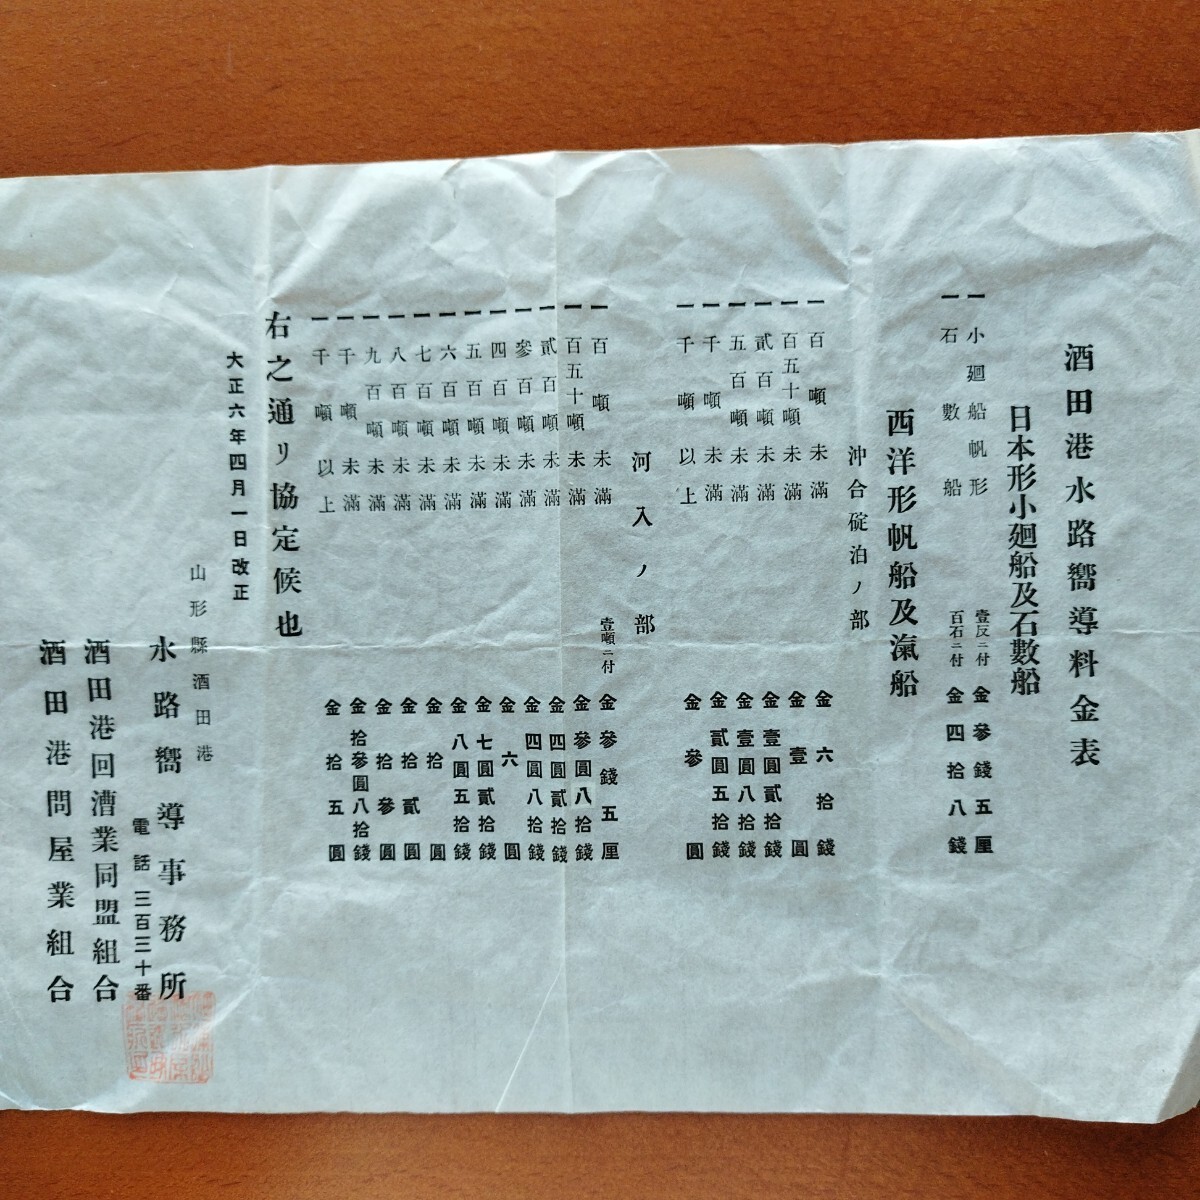 酒田港水路嚮導料金表
日本形小廻船及石數船
一小廻船帆形 壹反ニ付 金參錢五厘
一石數船 百石ニ付 金四拾八錢
西洋形帆船及滊船
沖合碇泊ノ部
一百噸未滿 金六拾錢
一百五十噸未滿 金壹圓
一貳百噸未滿 金壹圓貳拾錢
一五百噸未滿 金壹圓八拾錢
一千噸未滿 金貳圓五拾錢
一千噸以上 金參圓
河入ノ部
一百噸未滿 壹噸ニ付 金參錢五厘
一百五十噸未滿 金參圓八拾錢
一貳百噸未滿 金四圓貳拾錢
一參百噸未滿 金四圓八拾錢
一四百噸未滿 金六圓
一五百噸未滿 金七圓貳拾錢
一六百噸未滿 金八圓五拾錢
一七百噸未滿 金拾圓
一八百噸未滿 金拾貳圓
一九百噸未滿 金拾參圓
一千噸未滿 金拾參圓八拾錢
一千噸以上 金拾五圓
右之通リ協定候也
大正六年四月一日改正
山形縣酒田港
水路嚮導事務所
電話三百三十番
酒田港回漕業同盟組合
酒田港問屋業組合